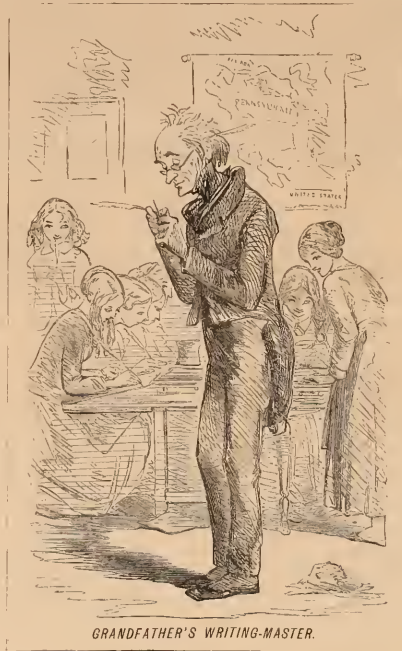 PENNSYLVANIA
UNITED STATES
GRANDFATHER'S WRITING-MASTER.